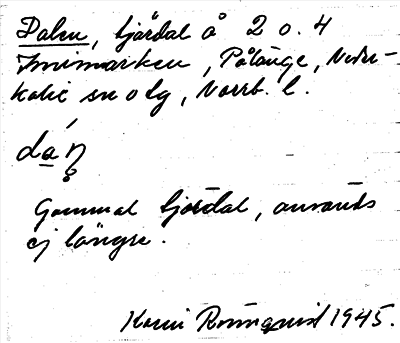 Dalen, tjärdal å 2 o. 4
Innimarken, Pålänge, Neder-
kalix sn o tg, Norrb. l.
Gammal tjärdal, används
ej längre.
Karin Rönnquist 1945.